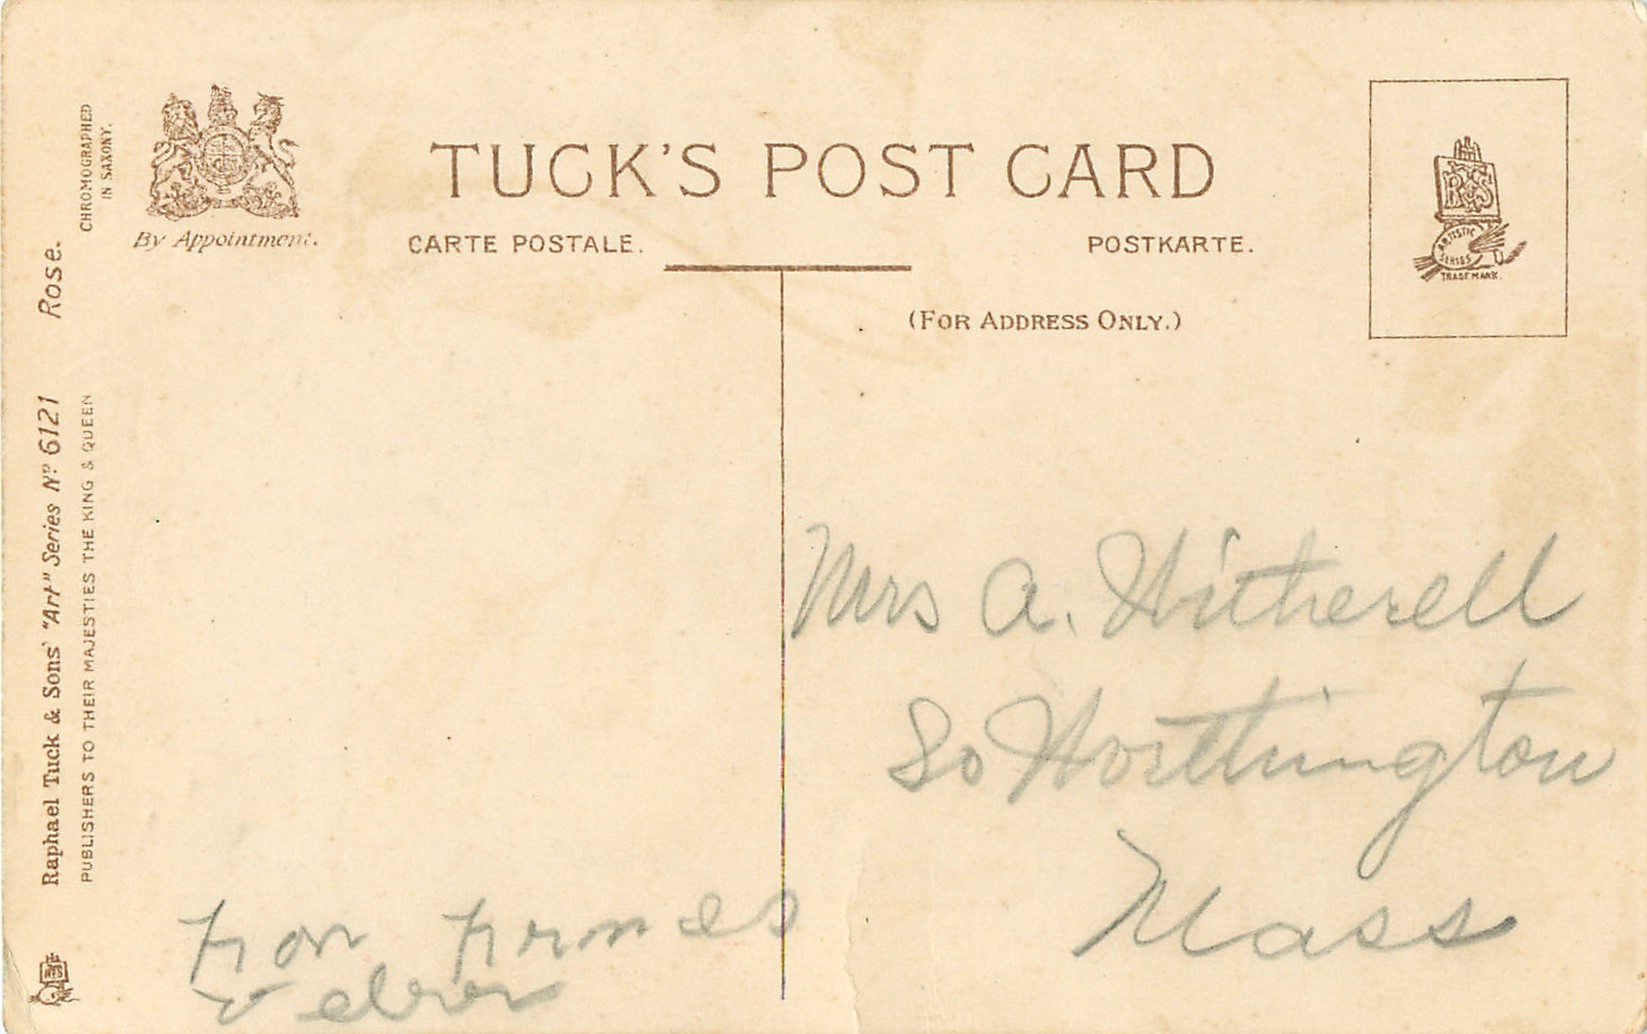 CHROMOGRAPHED
IN SAXONY.
By Appointment.
TUCK'S POST CARD
CARTE POSTALE.
POSTKARTE.
(FOR ADDRESS ONLY.)
R T & S
ARTISTIC
SERIES
TRADE MARK.
Raphael Tuck & Sons' "Art" Series Nº 6121 Rose.
PUBLISHERS TO THEIR MAJESTIES THE KING & QUEEN
Mrs A. Witherell
So Worthington
Mass